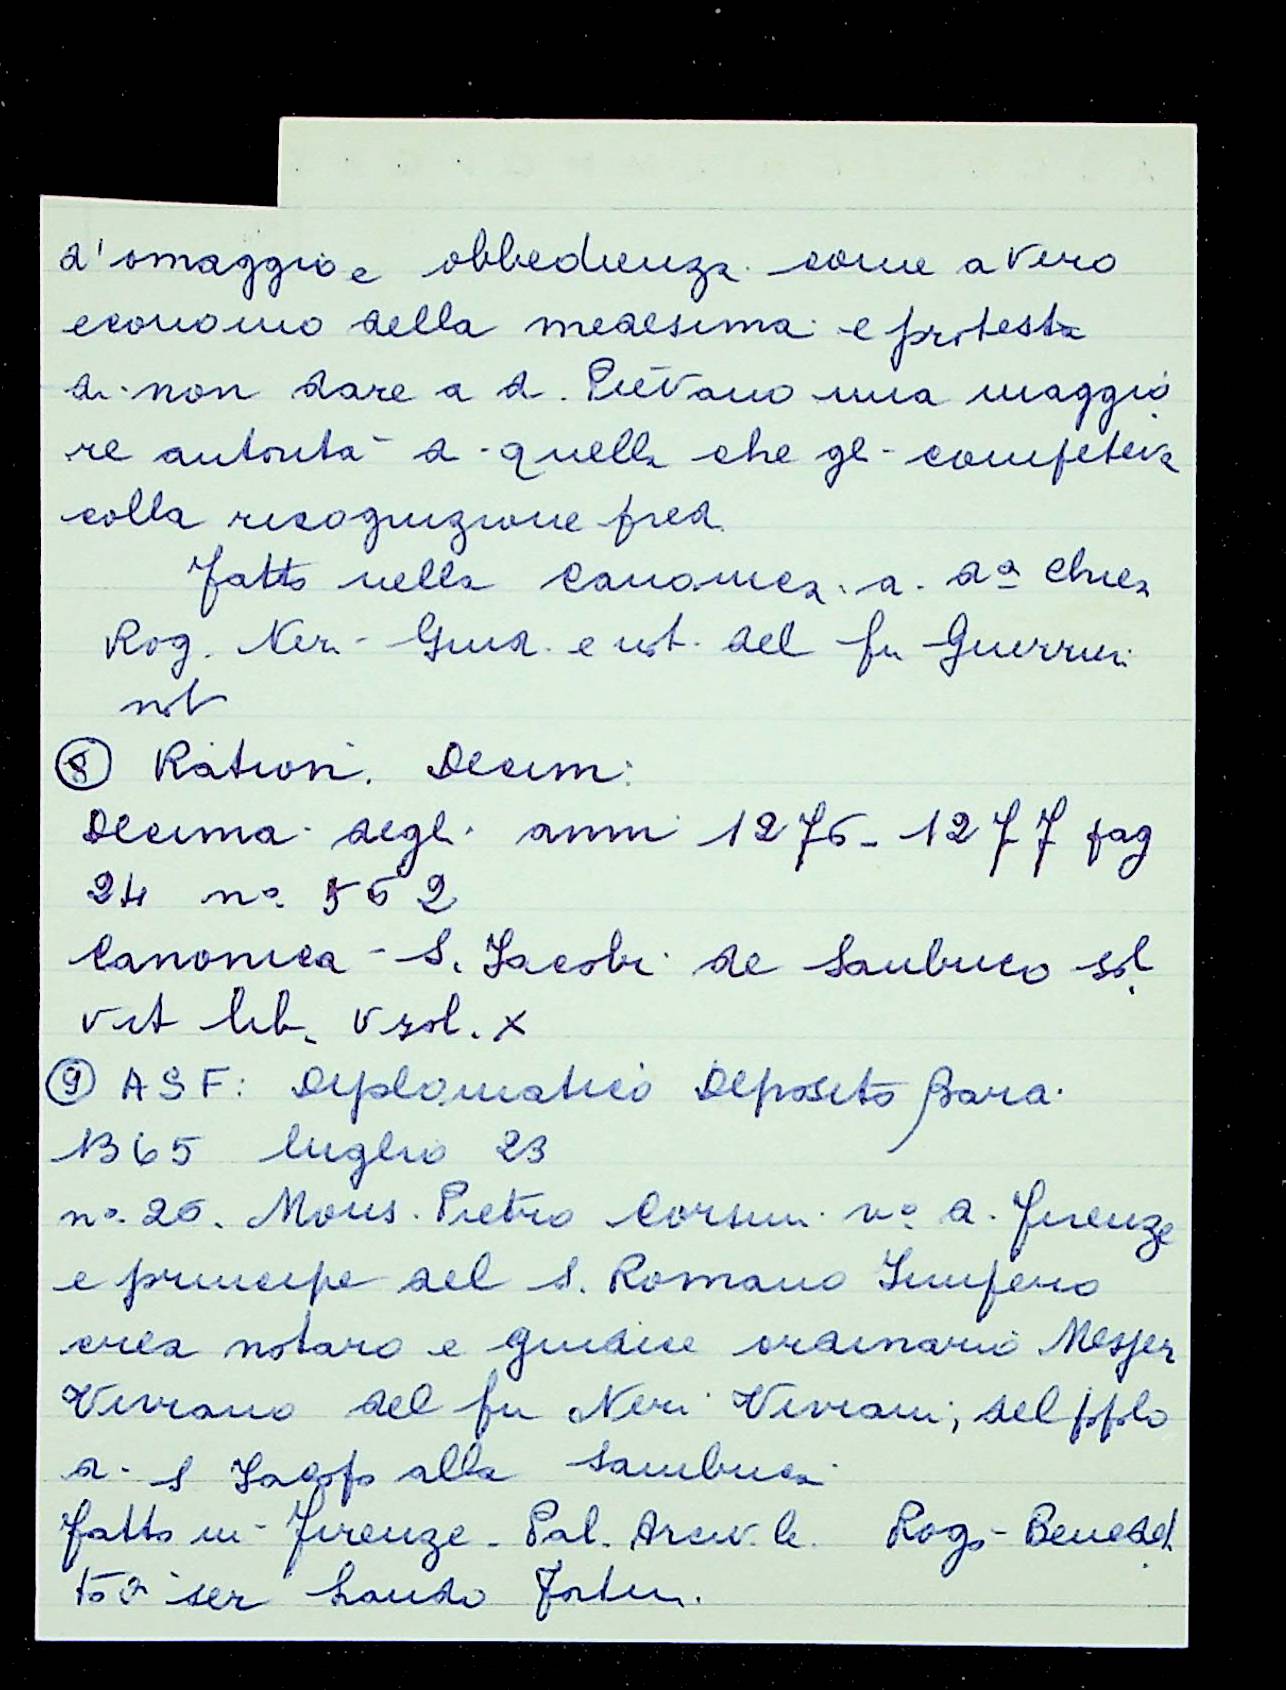 d'omaggio e obbedienza come a vero
economo della medesima e protesta
di non dare a d. Pievano una maggio
re autorità di quella che gli competeva
colla recognizione pred.
Fatto nella canonica di dª chiesa
Rog. Neri Giud. e not. del fu Guerrieri
not
⑧ Ration. Decim:
Decima degli anni 1276-1277 pag
24 nº 562
Canonica S. Jacobi de Sambuco sol
vit lib. V sol. X
⑨ ASF: Diplomatico Deposito
1365 luglio 23
nº 26. Mons. Pietro Corsini vº di Firenze
e principe del S. Romano Impero
crea notaro e giudice ordinario Messer
Viviano del fu Neri Viviani, del pplo
di S Jacopo alla Sambuca
fatto in Firenze. Pal. Arciv.le. Rogº Benedet
to di ser Lando Fortin.